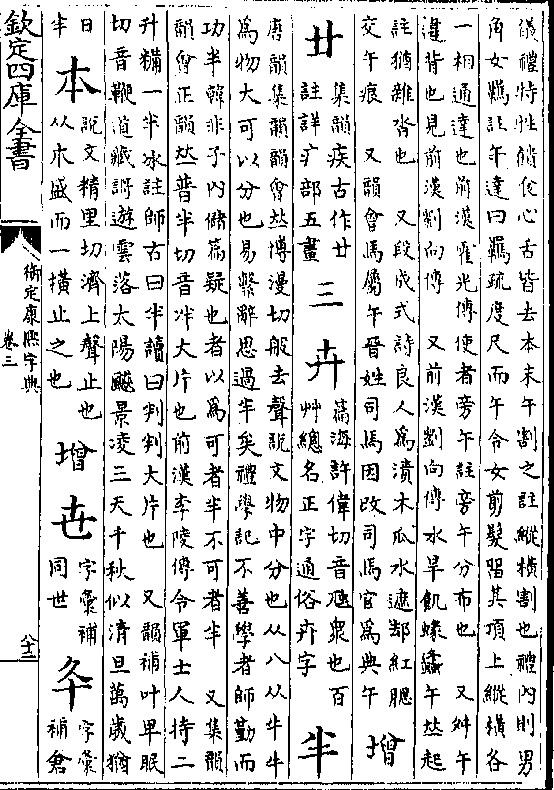 儀禮特牲饋食心舌皆去本末午割之註縱橫割也禮內則男
角女羈註午達曰羈疏度尺而午令女剪髮留其頂上縱橫各
一相通達也前漢霍光傳使者旁午註旁午分布也 又舛午
違背也見前漢劉向傳 又前漢劉向傳水旱飢蝝螽午𠀤起
註猶雜沓也 又段成式詩良人為漬木瓜水遮郤紅腮
交午痕 又韻會馬屬午晉姓司馬因改司馬官為典午 增
廿 集韻疾古作廿註詳疒部五畫 三 卉 篇海許偉切音虺衆也百艸總名正字通俗卉字 半
唐韻集韻韻會𠀤博漫切般去聲說文物中分也从八从牛牛
為物大可以分也易繫辭思過半矣禮學記不善學者師勤而
功半韓非子內儲篇疑也者以為可者半不可者半 又集韻
韻會正韻𠀤普半切音泮大片也前漢李陵傳令軍士人持二
升糒一半冰註師古曰半讀曰判判大片也 又韻補叶卑眠
切音鞭道藏謌遊雲落太陽飇景凌三天千秋似清旦萬歲猶
日半 本 說文精里切濟上聲止也从木盛而一橫止之也 增 卋 字彙補同世 卆 字彙補倉
欽定四庫全書
御定康熙字典
卷三